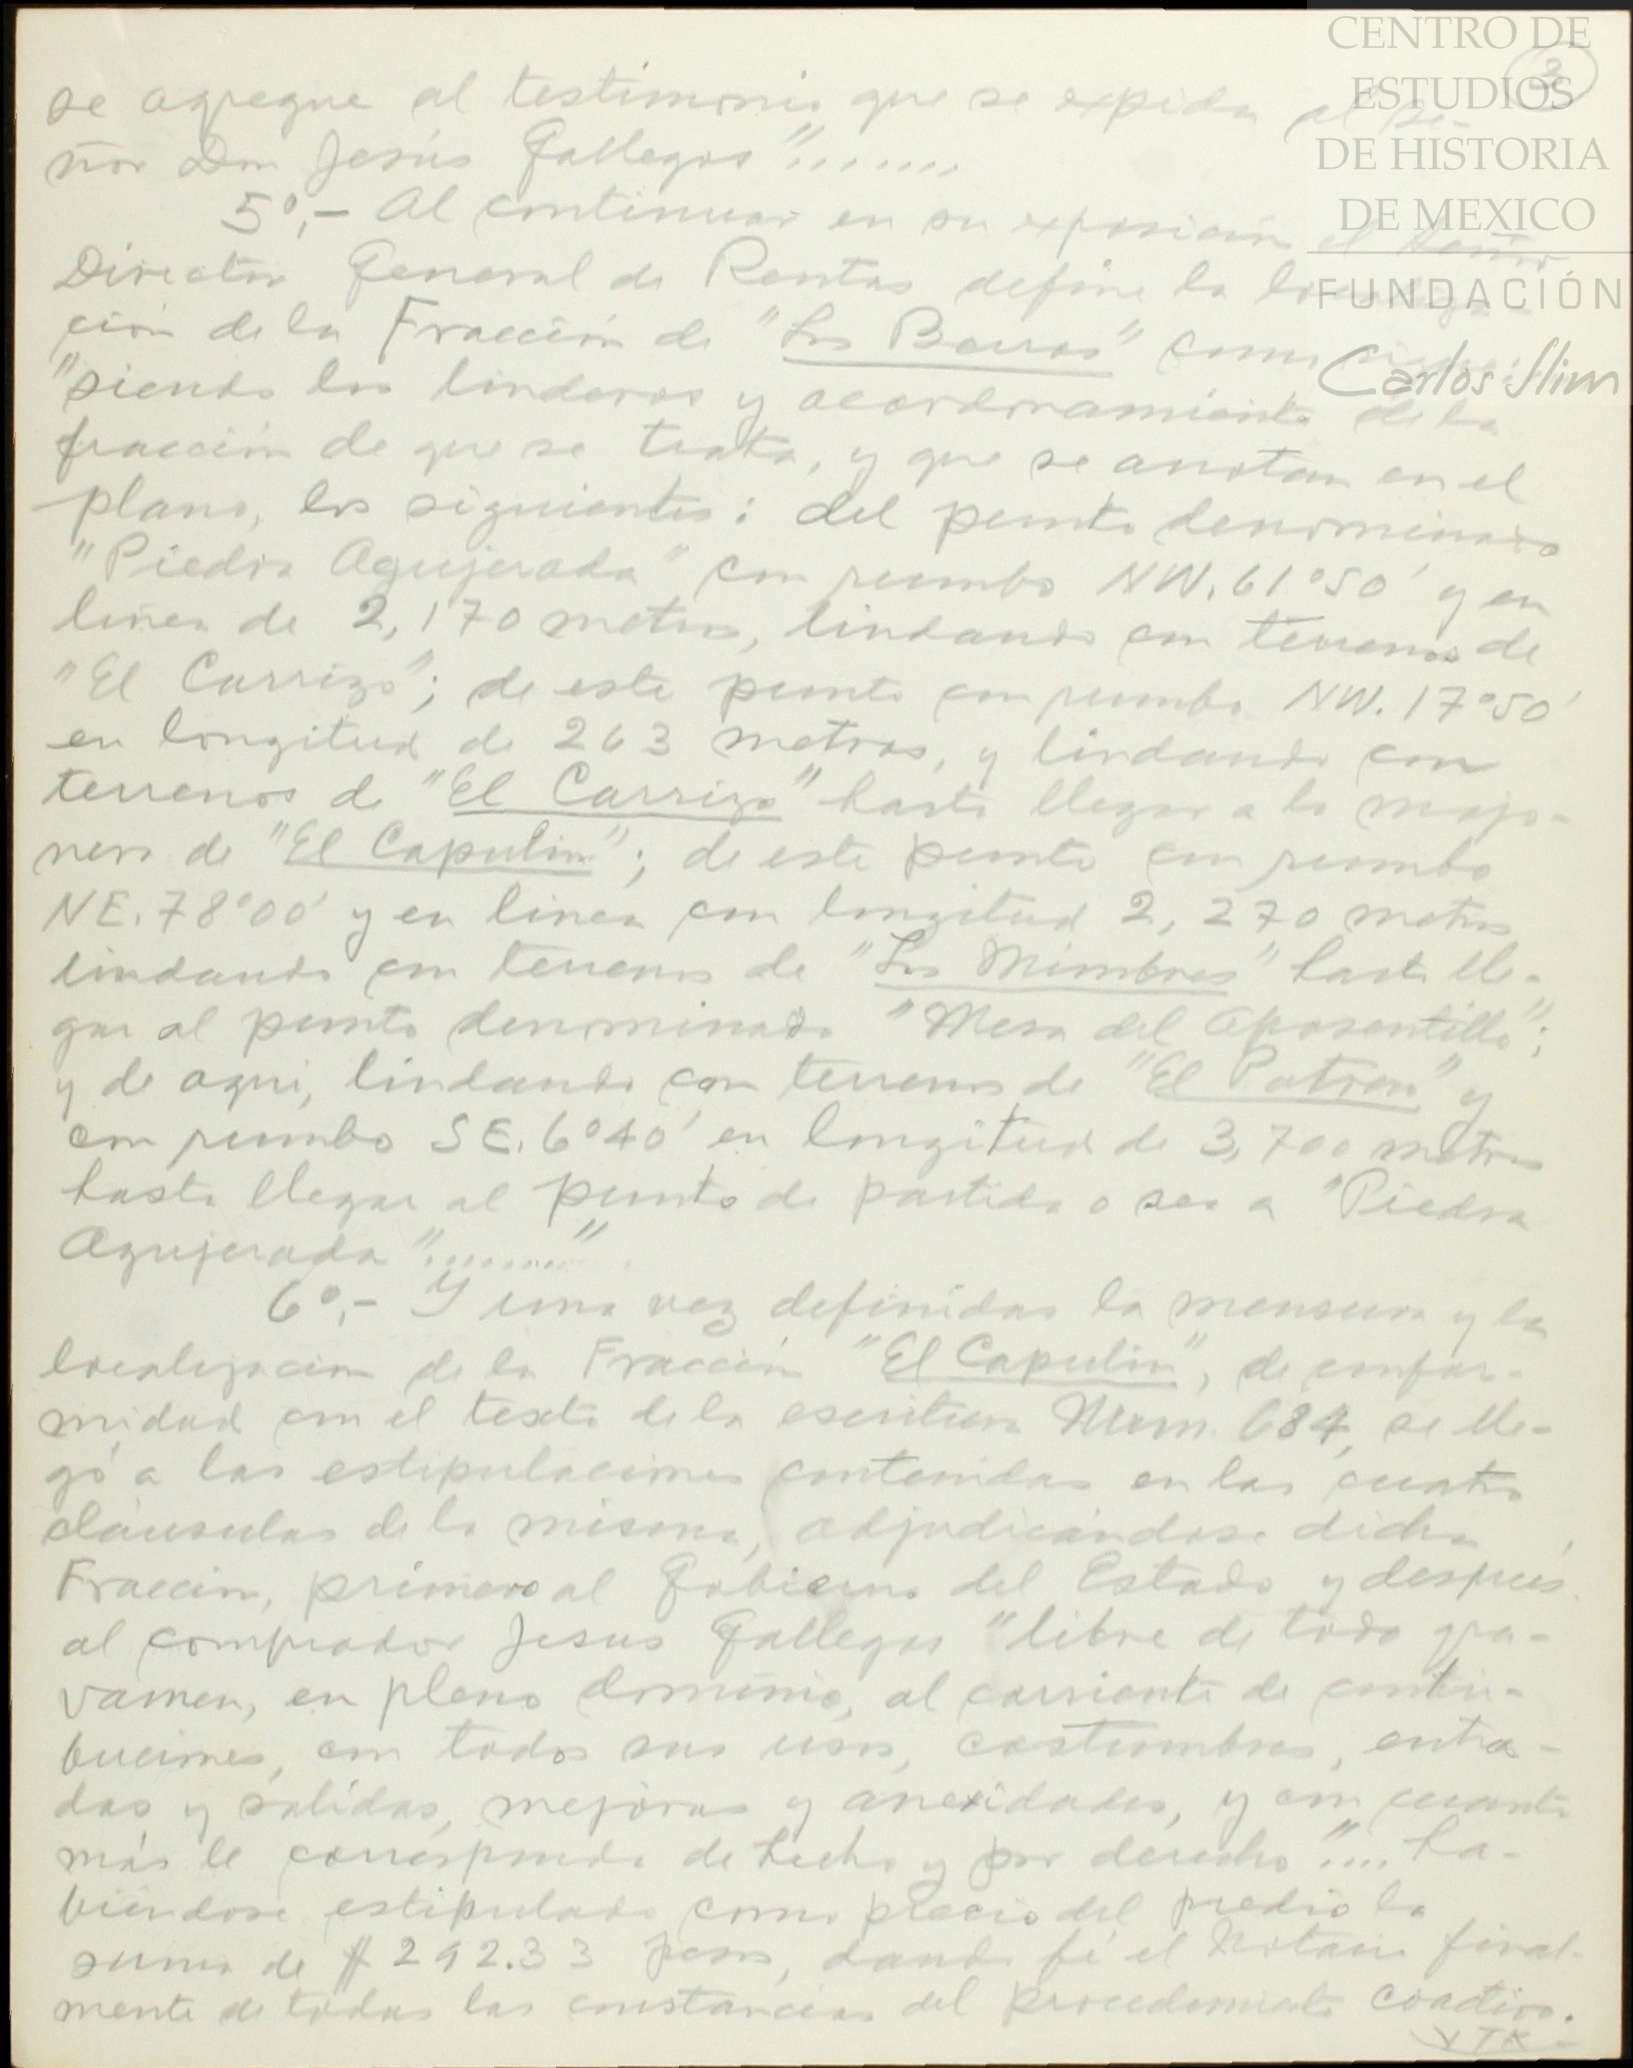 CENTRO DE
ESTUDIOS
DE HISTORIA
DE MEXICO
FUNDACIÓN
Carlos Slim
3
se agregue al testimonio que se expida al Se-
ñor Don Jesús Gallegos".......
5º,- Al continuar en su exposición el Señor
Director General de Rentas define la localiza-
ción de la Fracción de "Los Barros" como sigue:
"siendo los linderos y acordonamiento de la
fracción de que se trata, y que se anotan en el
plano, los siguientes: del punto denominado
"Piedra Agujerada" con rumbo NW. 61°50' y en
linea de 2,170 metros, lindando con terrenos de
"El Carrizo"; de este punto con rumbo NW. 17°50'
en longitud de 263 metros, y lindando con
terrenos de "El Carrizo" hasta llegar a la mojo-
nera de "El Capulin"; de este punto con rumbo
NE. 78°00' y en linea con longitud 2,270 metros
lindando con terrenos de "Los Mimbres" hasta lle-
gar al punto denominado "Mesa del Aposentillo";
y de aqui, lindando con terrenos de "El Potrero" y
con rumbo SE. 6°40' en longitud de 3,700 metros
hasta llegar al punto de partida o sea a "Piedra
Agujerada"........"
6º,- Y una vez definidas la mensura y la
localizacion de la Fracción "El Capulin", de confor-
midad con el texto de la escritura Num. 684, se lle-
gó a las estipulaciones contenidas en las cuatro
cláusulas de la misma, adjudicándose dicha
Fraccion, primero al Gobierno del Estado y después
al comprador Jesus Gallegos "libre de todo gra-
vamen, en pleno dominio, al corriente de contri-
buciones, con todos sus usos, costumbres, entra-
das y salidas, mejoras y anexidades, y con cuanto
más le corresponda de hecho y por derecho".... ha-
biéndose estipulado como precio del predio la
suma de $ 292.33 pesos, dando fé el Notario final-
mente de todas las constancias del procedimiento coactivo.